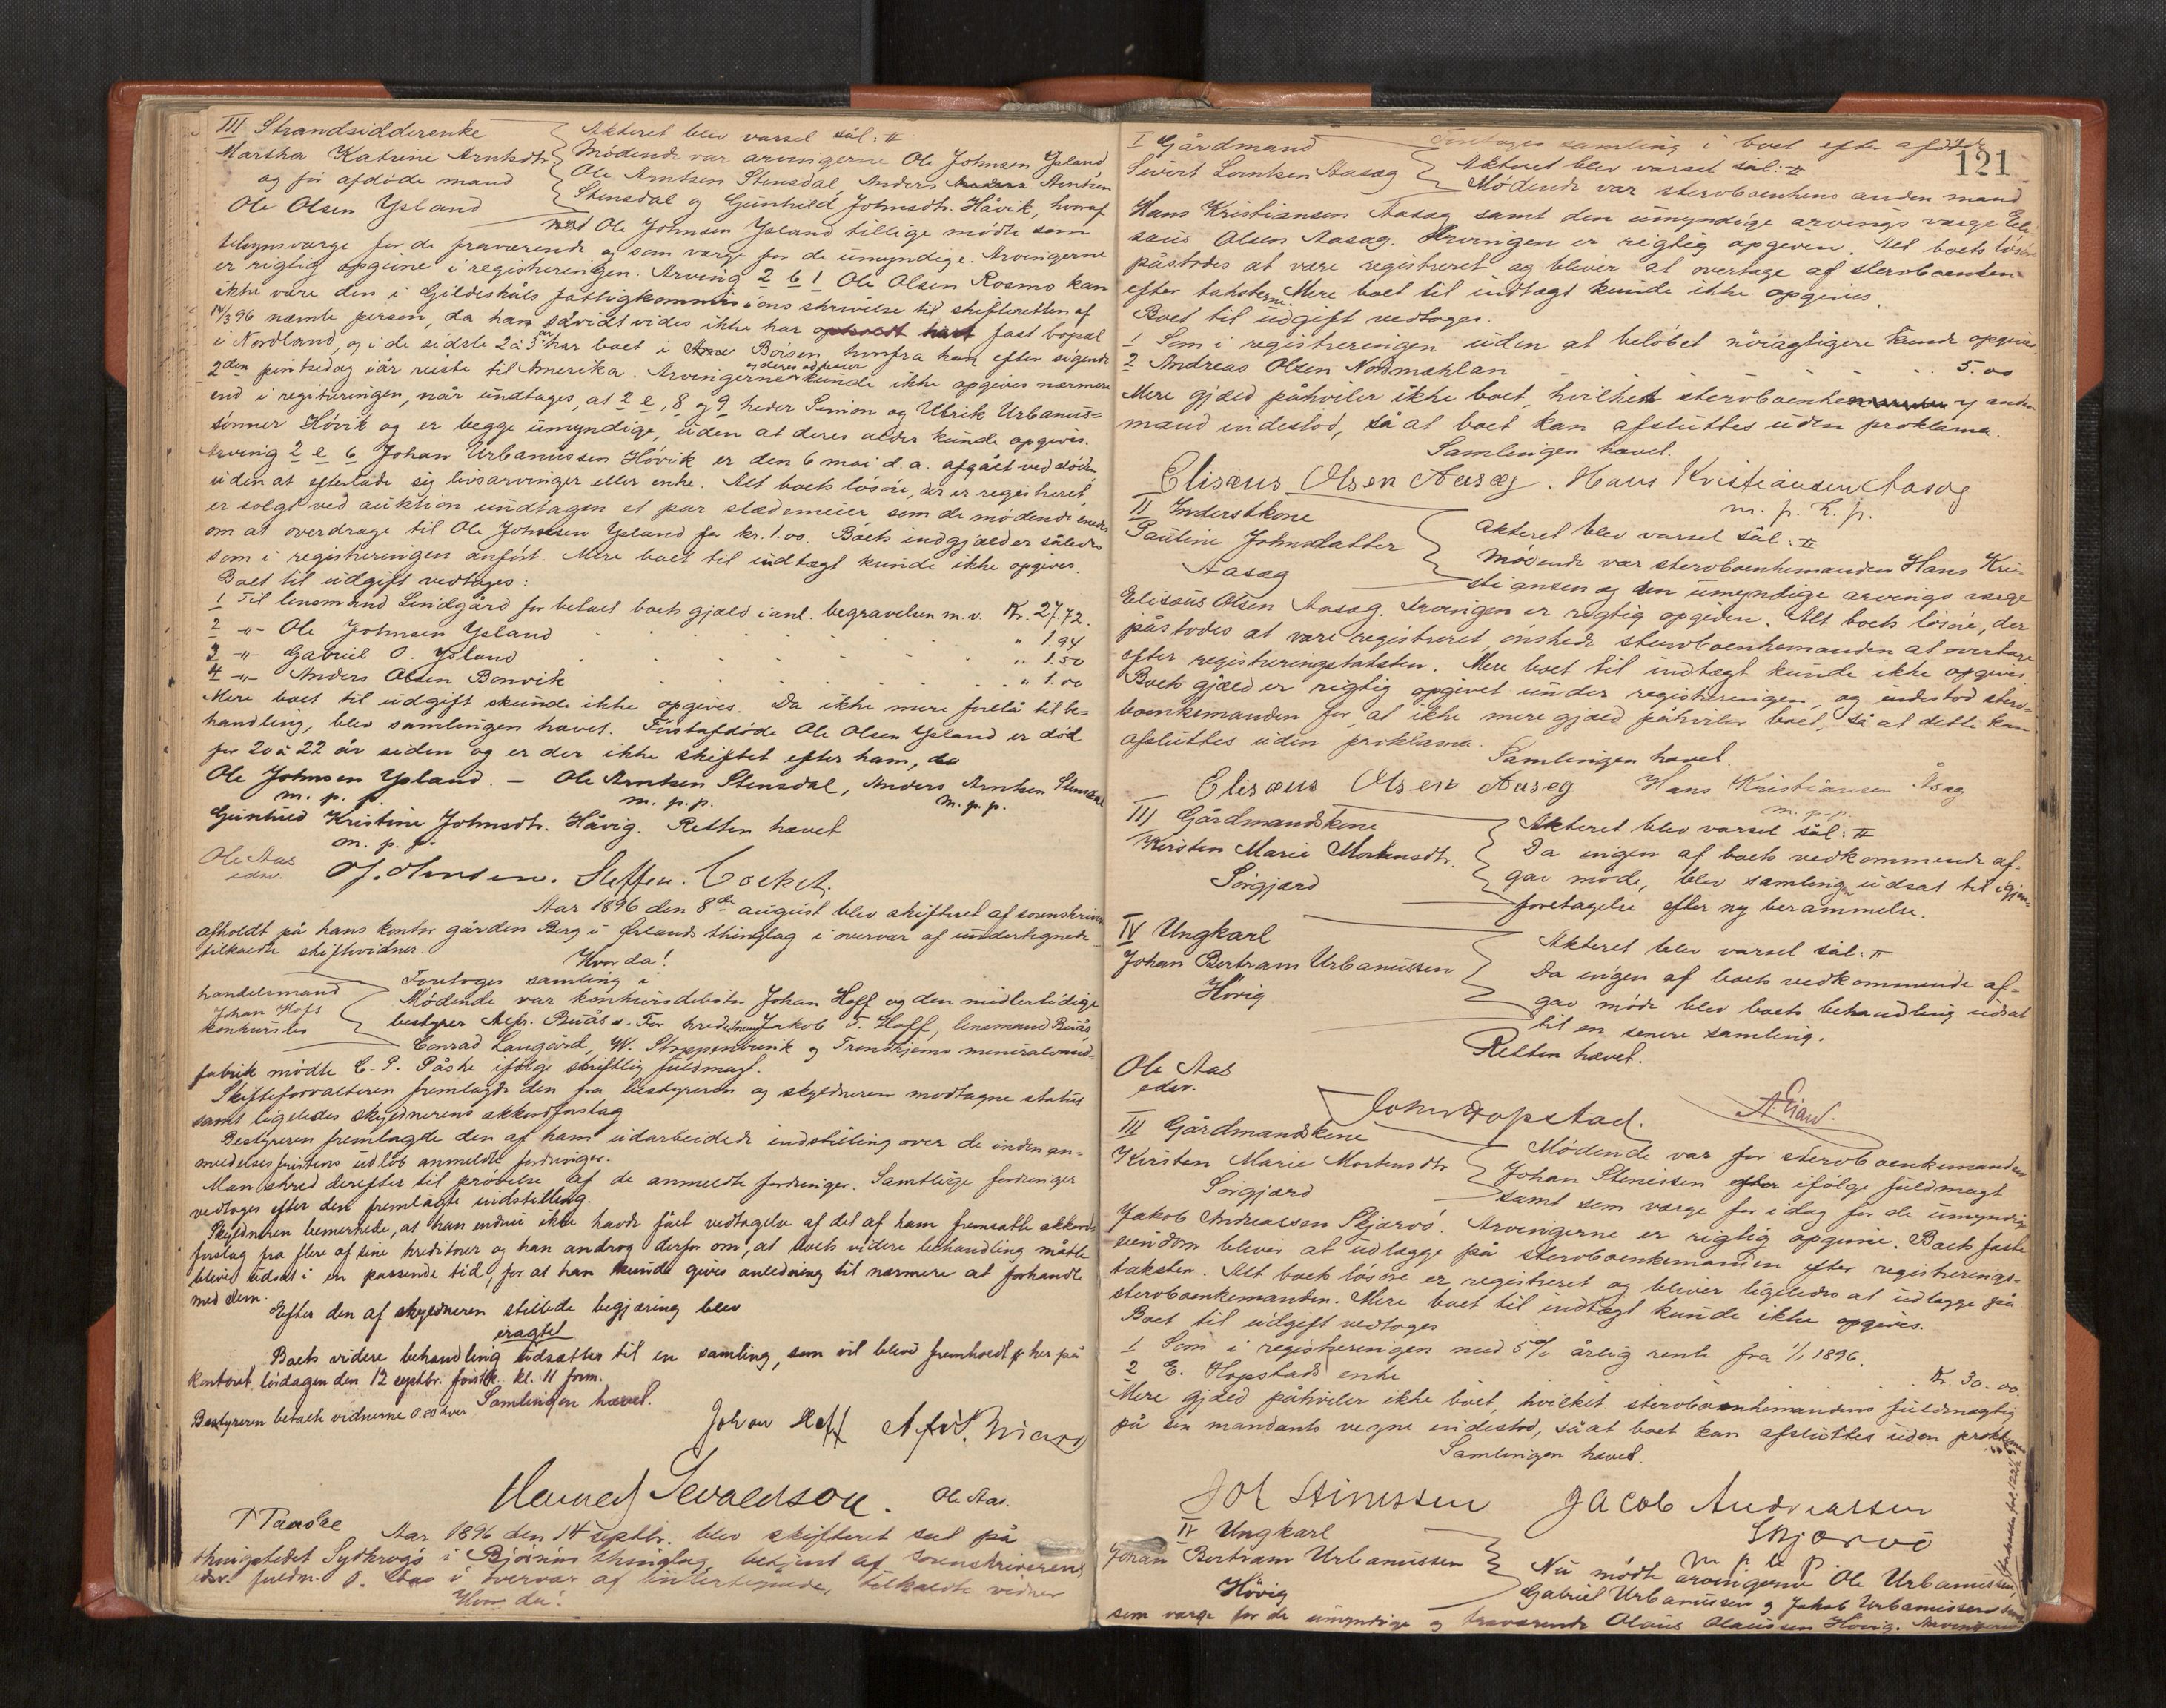 III Strandsidderenke
Martha Katrine Arntsdtr.
og før afdøde mand
Ole Olsen Ysland
Akteret blev varsel sål: II
Mødende var arvingerne Ole Johnsen Ysland
Ole Arntsen Stensdal, Anders Arntsen
Stensdal og Gunhild Johnsdtr. Håvik, hvoraf
Ole Johnsen Ysland tillige mødte som
tilsynsværge for de fraværende og som værge for de umyndige. Arvingerne
er rigtig opgivne i registreringen. Arving 2 b 1 Ole Olsen Rosmo kan
ikke være den i Gildeskåls fattigkommissions skrivelse til skifteretten af
14/3 96 nævnte person, da han såvidt vides ikke har fast bopæl
i Nordland, og i de sidste 2 à 3 år har boet i Boisen, hvorfra han efter sigende
2den pintsedag iår reiste til Amerika. Arvingerne og deres adresser kunde ikke opgives nærmere
end i registreringen, når undtages, at 2 e, 8 og 9 heder Simon og Ulrik Urbanus=
sønner Hövik og er begge umyndige, uden at deres alder kunde opgives.
Arving 2 e 6 Johan Urbanussen Hövik er den 6 mai d.a. afgået ved döden
uden at efterlade sig livsarvinger eller enke. Alt boets lösöre, der er registreret,
er solgt ved auktion undtagen et par slædemeier som de mödende enedes
om at overdrage til Ole Johnsen Ysland for kr. 1.00. Boets indgjæld er således
som i registreringen anfört. Mere boet til indtægt kunde ikke opgives.
Boet til udgift vedtoges:
1 Til lensmand Lindgård for betalt boets gjæld i anl. begravelsen m.v. Kr. 27.72.
2 -"- Ole Johnsen Ysland " 1.94
3 -"- Gabriel O. Ysland " 1.50
4 -"- Anders Olsen Bonvik " 1.00
Mere boet til udgift kunde ikke opgives. Da ikke mere forelå til be=
handling, blev samlingen hævet. Förstafdöde Ole Olsen Ysland er död
for 20 à 22 år siden og er der ikke skiftet efter ham,
Ole Johnsen Ysland. — Ole Arntsen Stensdal, Anders Arntsen Stensdal
m. p. p. m. p. p. m. p. p.
Gunhild Kristine Johnsdtr. Håvig. Retten hævet
m. p. p.
Ole Aas
edsv.
Aar 1896 den 8de august blev skifteret af sorenskriveren
afholdt på hans kontor gården Berg i Ørlands thinglag i overvær af undertegnede
tilkaldte skiftevidner.
Hvor da!
Foretoges samling i
handelsmand
Johan Hofs
konkursbo
Mødende var konkursdebitor Johan Hoff og den midlertidige
bestyrer Alfr. Buås. For kreditorerne Jakob T. Hoff, lensmand Buås,
Conrad Langård, W. Stoppenbrink og Trondhjems mineralvand=
fabrik mödte C. P. Påske ifölge skriftlig fuldmagt.
Skifteforvalteren fremlagde den fra bestyreren og skyldneren modtagne status
samt ligeledes skyldnerens akkordforslag
Bestyreren fremlagde den af ham udarbeidede indstilling over de inden an=
meldelsesfristens udlöb anmeldte fordringer.
Man skred derefter til prövelse af de anmeldte fordringer. Samtlige fordringer
vedtoges efter den fremlagte indstilling.
Skyldneren bemerkede, at han endnu ikke havde fået vedtagelse af det af ham fremsatte akkord=
forslag fra flere af sine kreditorer og han androg derfor om, at boets videre behandling måtte
blive udsat i en passende tid, for at han kunde gives anledning til nærmere at forhandle
med dem.
Efter den af skyldneren stillede begjæring blev
eragtet
Boets videre behandling udsættes til en samling, som vil blive fremholdt her på
kontoret lördagen den 12 septbr. förstk. kl. 11 form.
Bestyreren betalte vidnerne 0.80 hver Samlingen hævet.
Johan Hoff
Ole Aas.
Aar 1896 den 14 septbr. blev skifteret sat på
thingstedet Sydkrogö i Björnörs thinglag, betjent af sorenskriverens
edsv. fuldm. O. Aas i overvær af undertegnede, tilkaldte vidner
Hvor da!
121
I Gårdmand
Sivert Lorntsen Aasæg
Foretoges samling i boet efter afdöde
Akteret blev varsel sål: II
Mödende var stervboenkens anden mand
Hans Kristiansen Aasæg samt den umyndige arvings værge Eli=
sæus Olsen Aasæg. Arvingen er rigtig opgiven. Alt boets lösöre
påstodes at være registreret og bliver at overtage af stervboenken
efter taksterne. Mere boet til indtægt kunde ikke opgives.
Boet til udgift vedtoges.
1 Som i registreringen uden at belöbet nöiagtigere kunde opgives
2 Andreas Olsen Nordmæhlan 5.00
Mere gjæld påhviler ikke boet, hvilket stervboenkens anden
mand indestod, så at boet kan afsluttes uden proklama.
Samlingen hævet.
Elisæus Olsen Aasæg. Hans Kristiansen Aasæg
m. p. p.
II Inderstkone
Pauline Johnsdatter
Aasæg
Akteret blev varsel sål: II
Mödende var stervboenkemanden Hans Kri=
stiansen og den umyndige arvings værge
Elisæus Olsen Aasæg. Arvingen er rigtig opgiven. Alt boets lösöre, der
påstodes at være registreret, önskede stervboenkemanden at overtage
efter registreringstaksten. Mere boet til indtægt kunde ikke opgives.
Boets gjæld er rigtig opgivet under registreringen, og indestod sterv=
boenkemanden for, at ikke mere gjæld påhviler boet, så at dette kan
afsluttes uden proklama.
Samlingen hævet.
Elisæus Olsen Aasæg Hans Kristiansen Åsæg
m. p. p.
III Gårdmandskone
Kirsten Marie Mortensdtr.
Sörgjærd
Akteret blev varsel sål: II
Da ingen af boets vedkommende af=
gav möde, blev samlingen udsat til igjen=
foretagelse efter ny berammelse.
IV Ungkarl
Johan Bertram Urbanussen
Hövig
Akteret blev varsel sål: II
Da ingen af boets vedkommende af=
gav möde blev boets behandling udsat
til en senere samling.
Retten hævet.
Ole Aas
edsv.
III Gårdmandskone
Kirsten Marie Mortensdtr
Sörgjærd
Mödende var for stervboenkemanden
Johan Stenersen ifölge fuldmagt
samt som værge for idag for de umyndige
Jakob Andreassen Skjærvö. Arvingerne er rigtig opgivne. Boets faste
eiendom bliver at udlægge på stervboenkemanden efter registrerings=
taksten. Alt boets lösöre er registreret og bliver ligeledes at udlægge på
stervboenkemanden. Mere boet til indtægt kunde ikke opgives.
Boet til udgift vedtoges
1 Som i registreringen med 5% årlig rente fra 1/1 1896.
2 E. Hopstads enke Kr. 30.00.
Mere gjæld påhviler ikke boet, hvilket stervboenkemandens fuldmægtig
på sin mandants vegne indestod, såat boet kan afsluttes uden proklama
Samlingen hævet.
Joh Stinessen Jacob Andreassen
Skjærvö
IV Ungkarl
Johan Bertram Urbanussen
Hövig
Nu mödte arvingerne Ole Urbanussen,
Gabriel Urbanussen og Jakob Urbanussen samt
som værge for de umyndige og fraværende Olaus Olaussen Hövig. Arvingerne